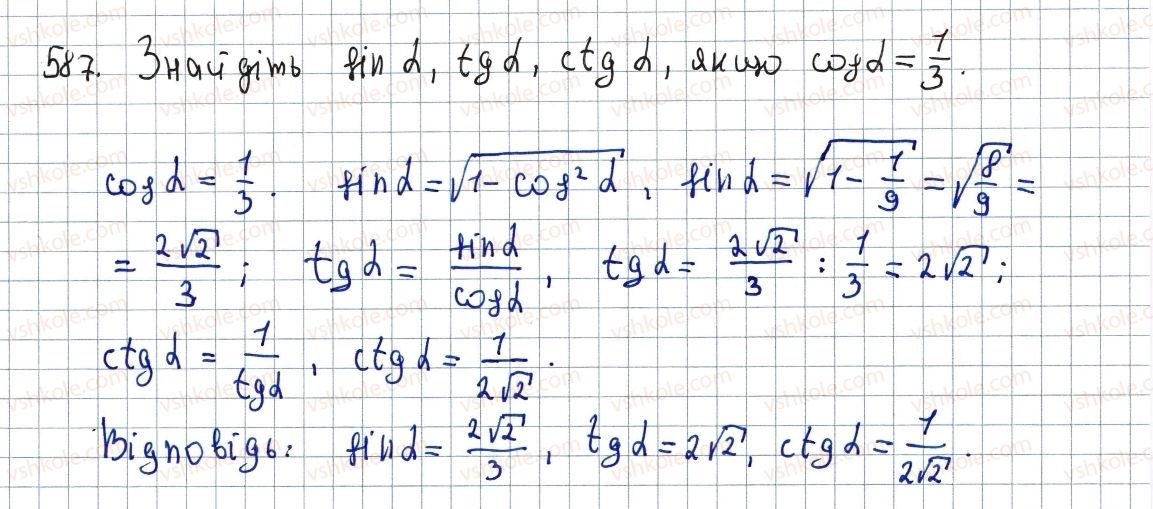 587. Знайдіть sin α, tg α, ctg α, якщо cos α = 1/3.
cos α = 1/3. sin α = √(1 - cos² α), sin α = √(1 - 1/9) = √(8/9) =
= 2√2/3; tg α = sin α/cos α, tg α = 2√2/3 : 1/3 = 2√2;
ctg α = 1/tg α, ctg α = 1/(2√2).
Відповідь: sin α = 2√2/3, tg α = 2√2, ctg α = 1/(2√2).